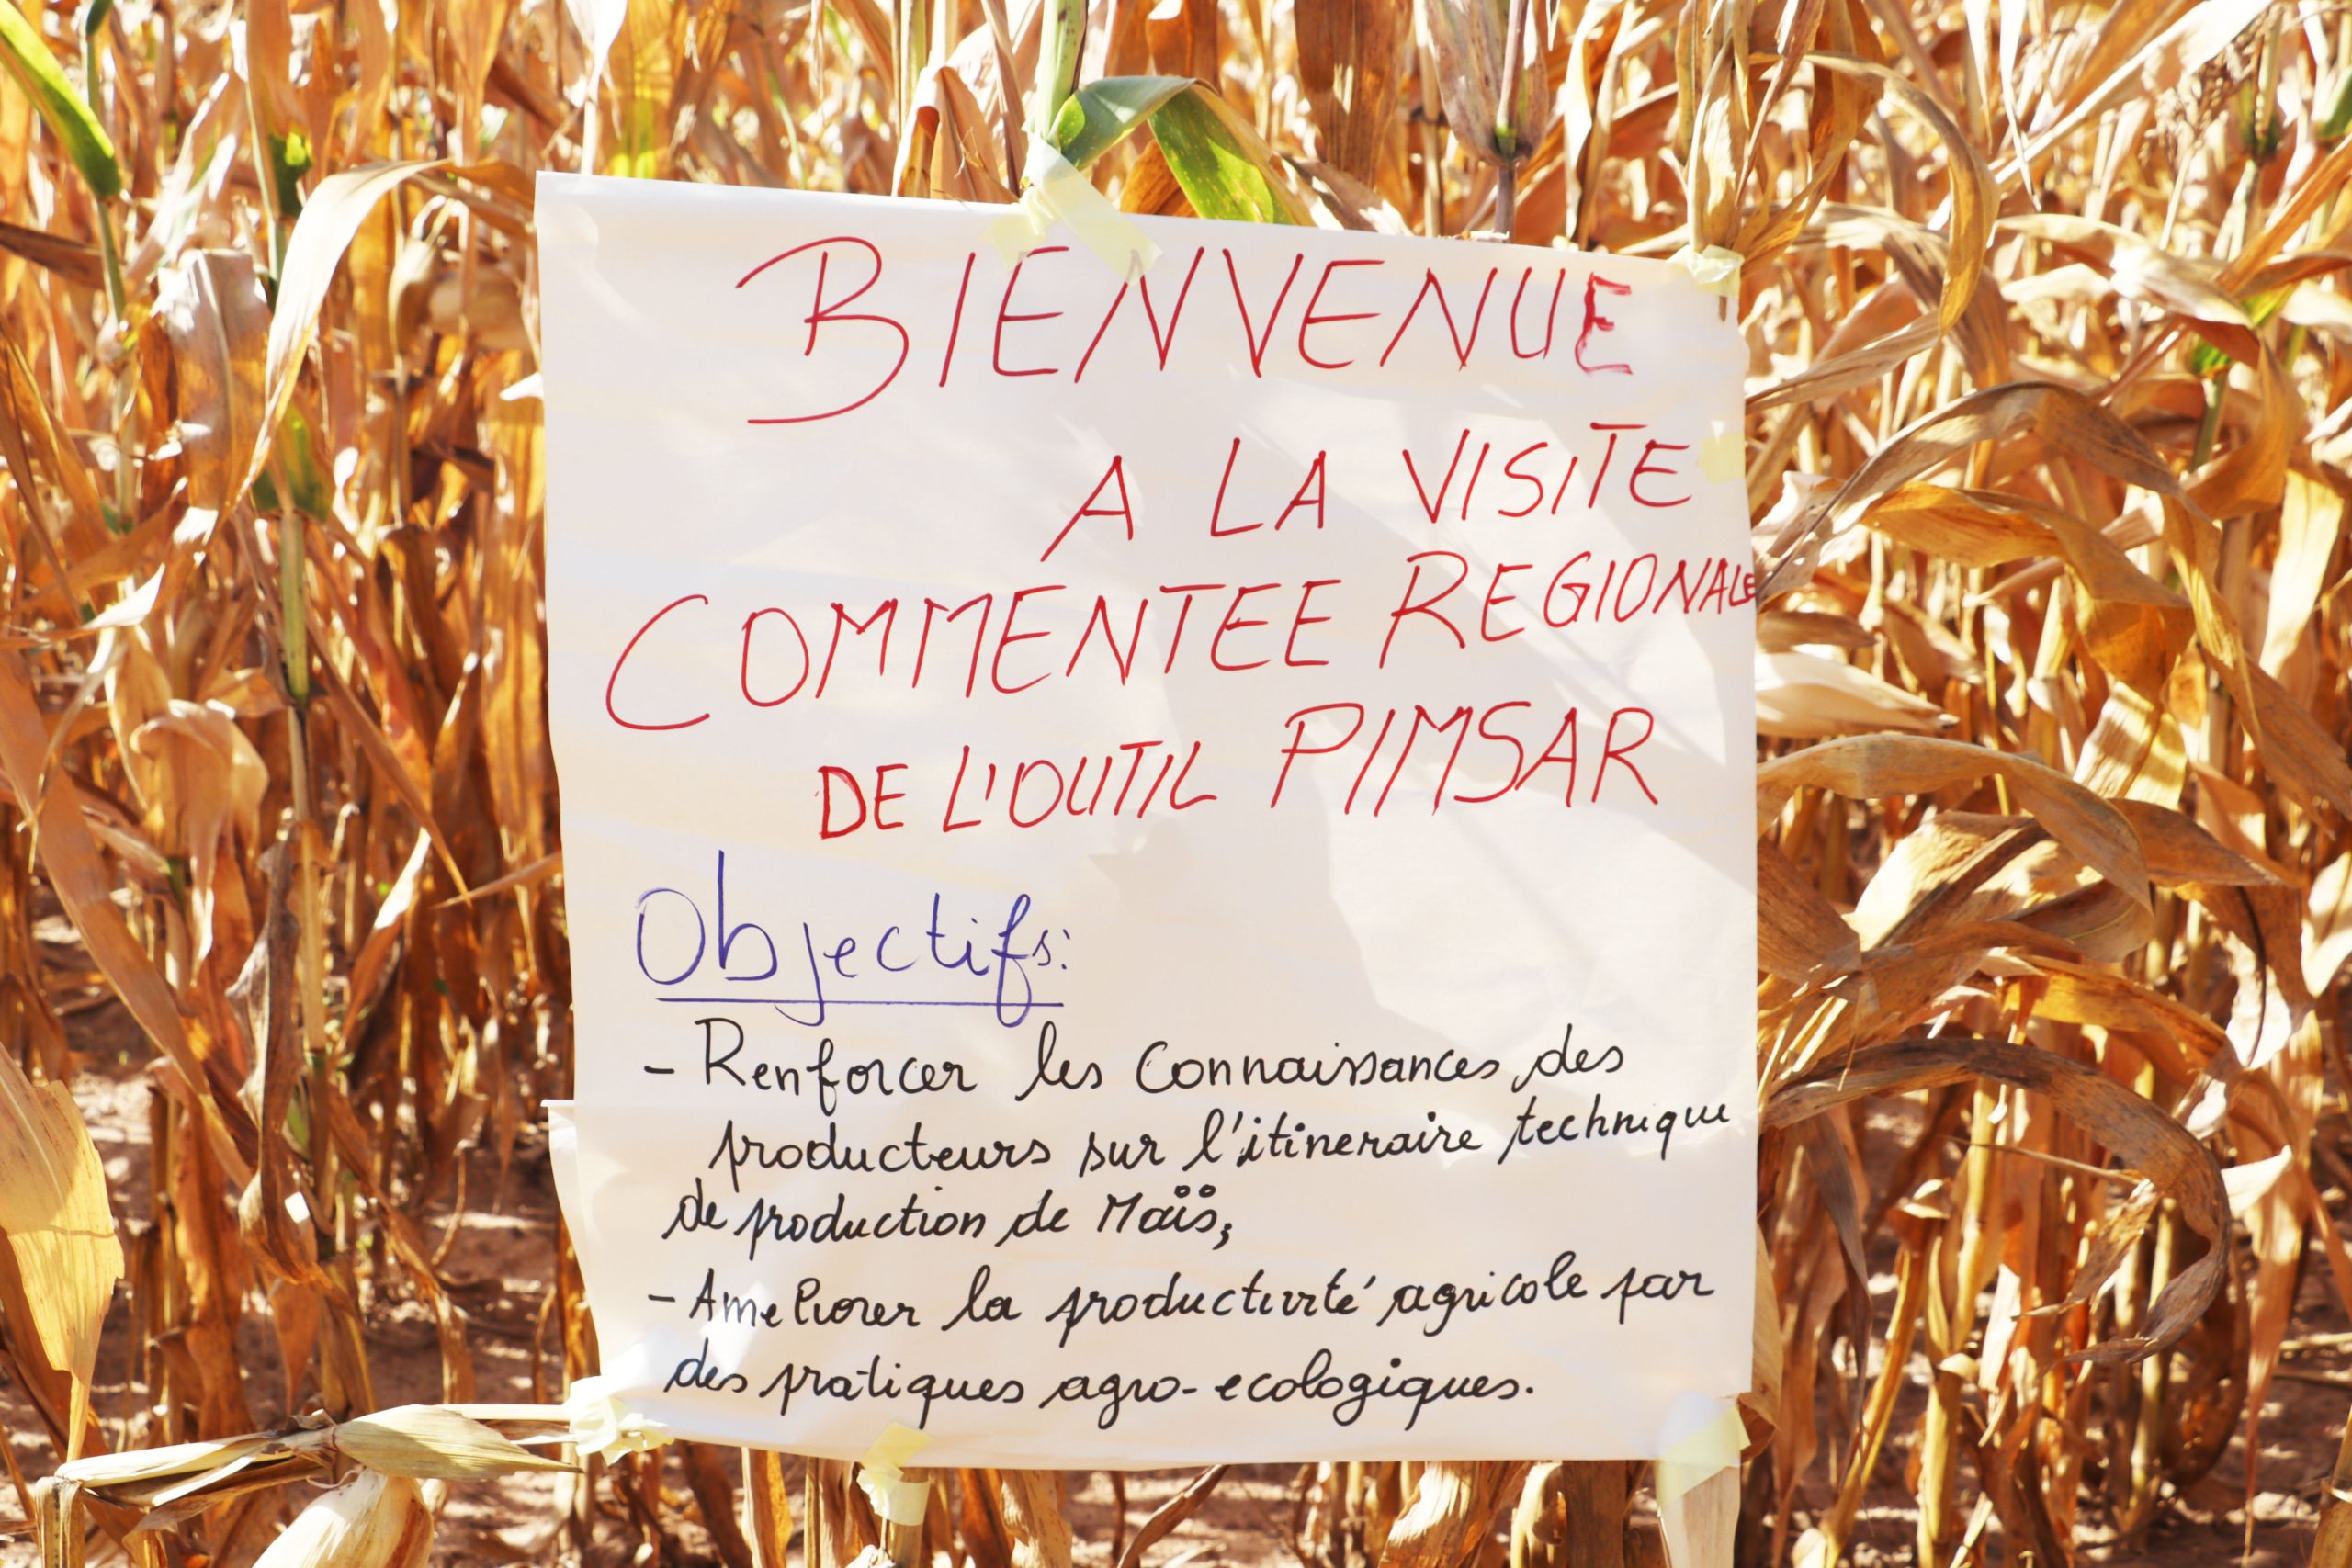 BIENVENUE
A LA VISITE
COMMENTEE REGIONALE
DE L'OUTIL PIMSAR
Objectifs:
- Renforcer les Connaissances des
producteurs sur l'itineraire technique
de production de Maïs,
- Ameliorer la productivité agricole par
des pratiques agro-ecologiques.